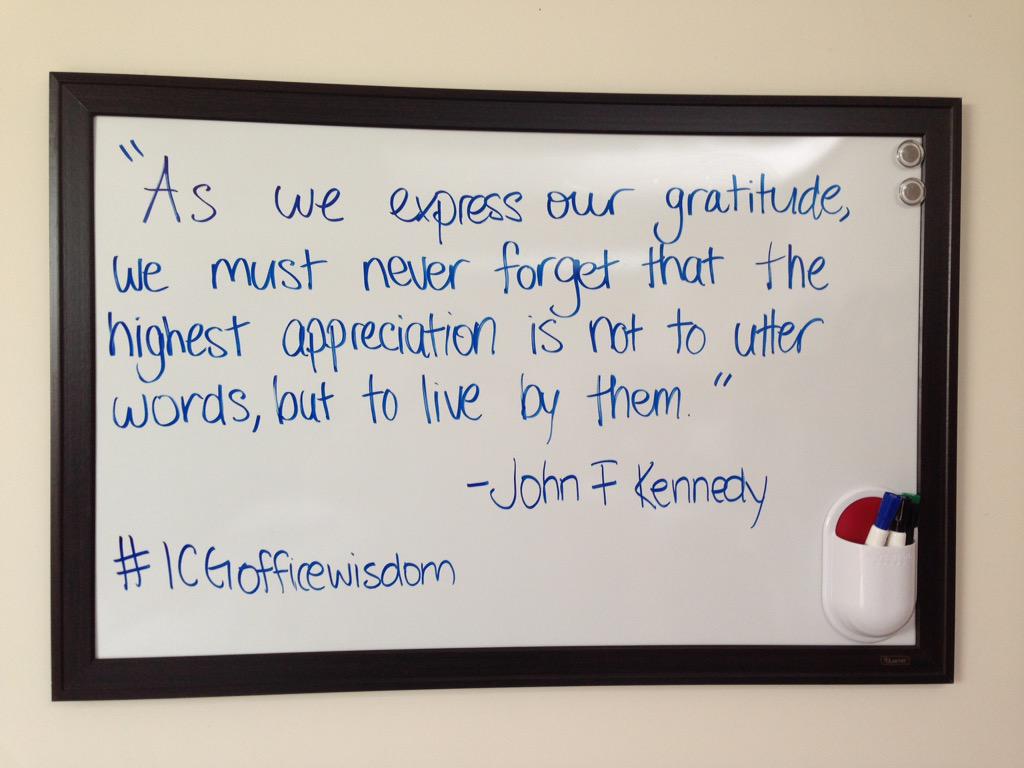 "As we express our gratitude,
we must never forget that the
highest appreciation is not to utter
words, but to live by them."
-John F Kennedy
#ICGofficewisdom